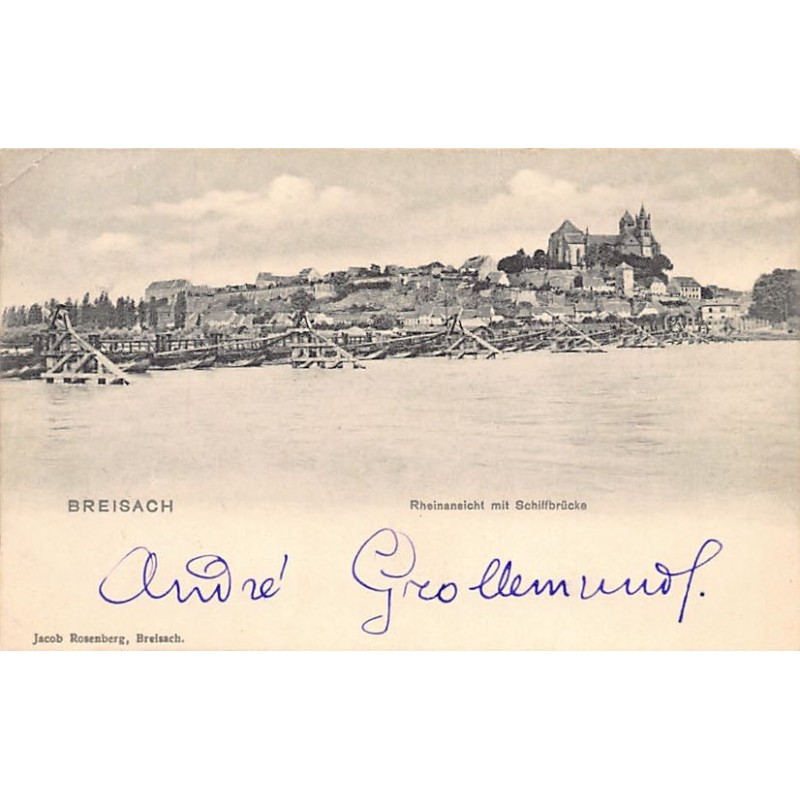 BREISACH
Rheinansicht mit Schiffbrücke
André Grollemund.
Jacob Rosenberg, Breisach.